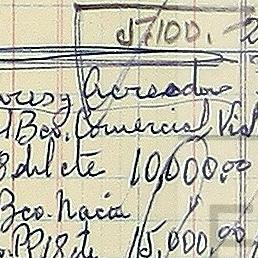 57100. 2
ores y Acreedore
l Bco. Comercial, Vis
8 del cte 10,000.00
Bco. Nacia
o. PP 18 cte 15,000.00